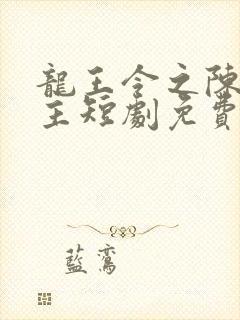 龍王令之陳
主短劇免費
藍鸞